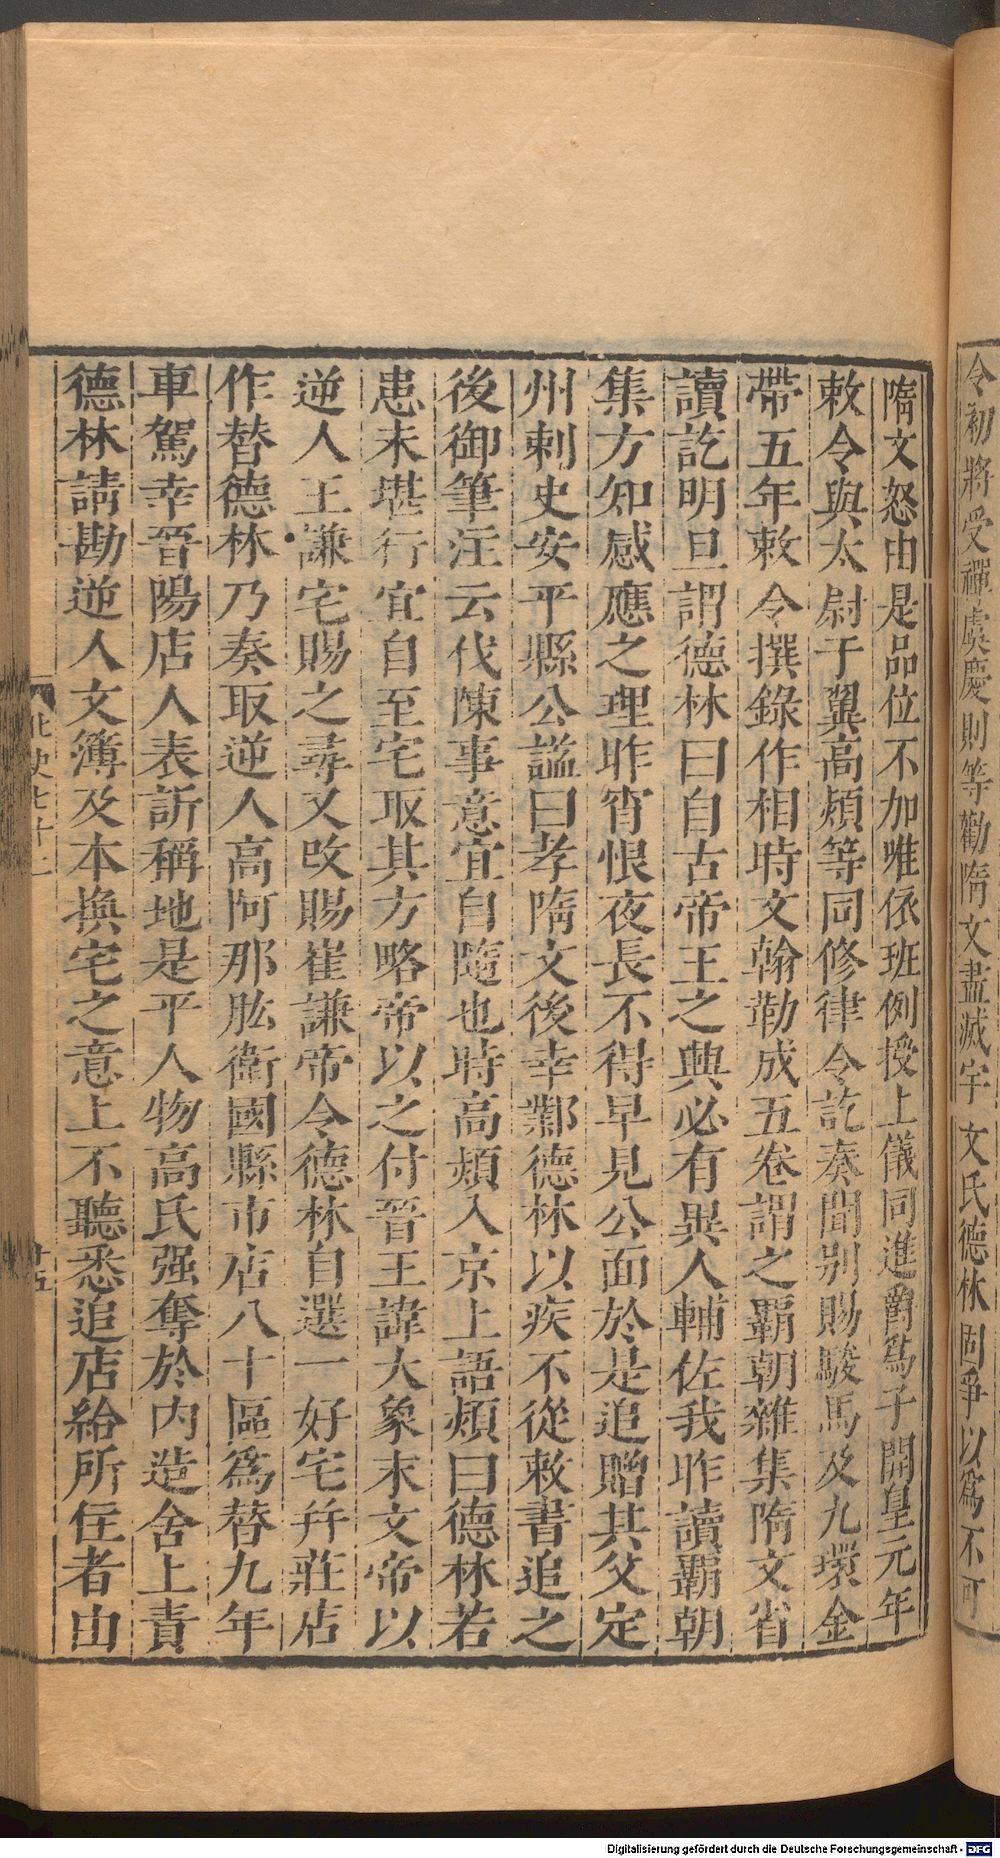 令初將受禪虞慶則等勸隋文盡滅宇文氏德林固爭以爲不可
隋文怒由是品位不加唯依班例授上儀同進爵爲子開皇元年
敕令與太尉于翼高熲等同修律令訖奏聞别賜駿馬及九環金
帶五年敕令撰錄作相時文翰勒成五卷謂之霸朝雜集隋文省
讀訖明旦謂德林曰自古帝王之興必有異人輔佐我昨讀霸朝
集方知感應之理昨宵恨夜長不得早見公面於是追贈其父定
州刺史安平縣公謚曰孝隋文後幸鄴德林以疾不從敕書追之
後御筆注云伐陳事意宜自隨也時高熲入京上語熲曰德林若
患未堪行宜自至宅取其方略帝以之付晉王諱大象末文帝以
逆人王謙宅賜之尋又改賜崔謙帝令德林自選一好宅并莊店
作替德林乃奏取逆人高阿那肱衛國縣市店八十區爲替九年
車駕幸晉陽店人表訴稱地是平人物高氏强奪於内造舍上責
德林請勘逆人文簿及本換宅之意上不聽悉追店給所住者由
北史七十二
十五
Digitalisierung gefördert durch die Deutsche Forschungsgemeinschaft - DFG